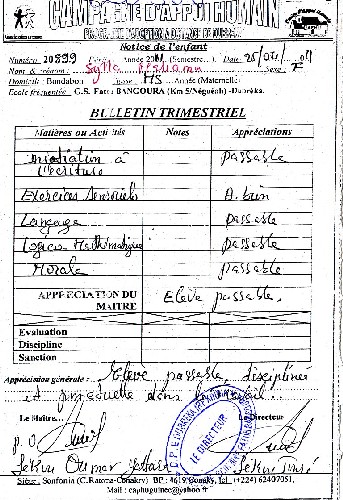 CAMPAGNE D'APPUI HUMAIN
Notice de l'enfant
Numéro: 20899 Année 20 (Semestre...). Date 25/04/
Nom & prénom: Sylla Sexe: F
Domicile: Bondabon Classe: MS Année (Maternelle)
Ecole fréquentée: G.S. Fatou BANGOURA (Km 5/Néguéah)-Dubréka.
BULLETIN TRIMESTRIEL
Matières ou Activités Notes Appréciations
Initiation à l'écriture passable
Exercices Sensoriels A. bien
Langage passable
Logico Mathématique passable
Morale passable
APPRECIATION DU MAITRE Elève passable.
Evaluation
Discipline
Sanction
Appréciation générale: Elève passable, disciplinée
et ponctuelle dans le travail.
Le Maître... Le Directeur
P.O
LE DIRECTEUR
Sékou Oumar Sékou
Siège: Sonfonia (C.Ratoma-Conakry) BP: 4619 Conakry, Tel. (+224) 62407051
Mail: caphuguinee@yahoo.fr